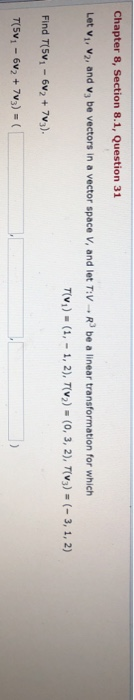 Chapter 8, Section 8.1, Question 31
Let v₁, v₂, and v₃ be vectors in a vector space V, and let T:V → R³ be a linear transformation for which
T(v₁) = (1, − 1, 2), T(v₂) = (0, 3, 2), T(v₃) = (− 3, 1, 2)
Find T(5v₁ − 6v₂ + 7v₃).
T(5v₁ − 6v₂ + 7v₃) = ( , , )